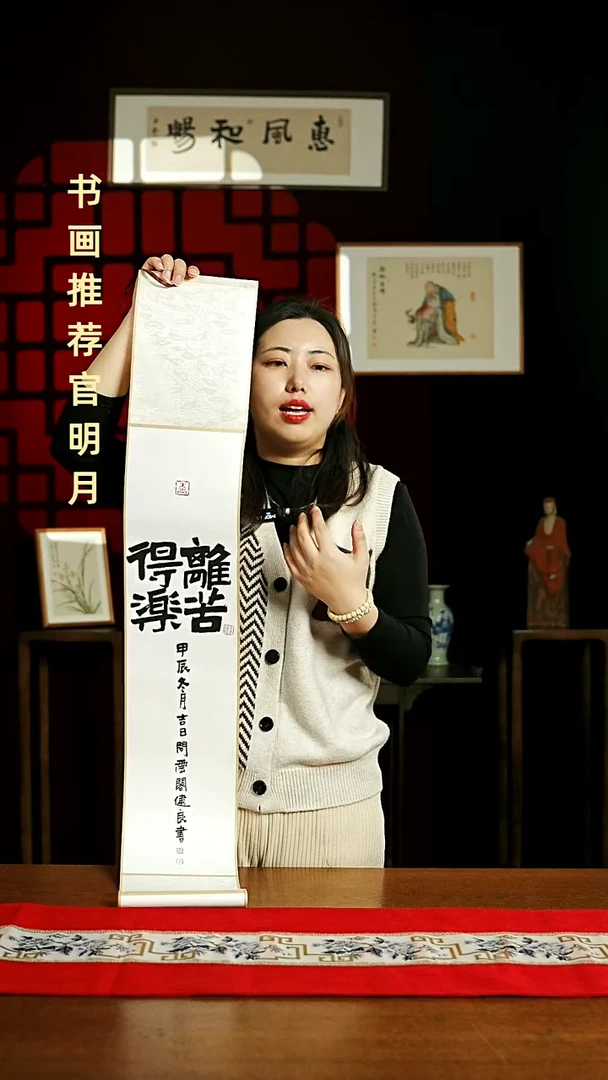 惠風和暢
书画推荐官明月
離苦
得樂
甲辰冬月吉日問雲閣建良書